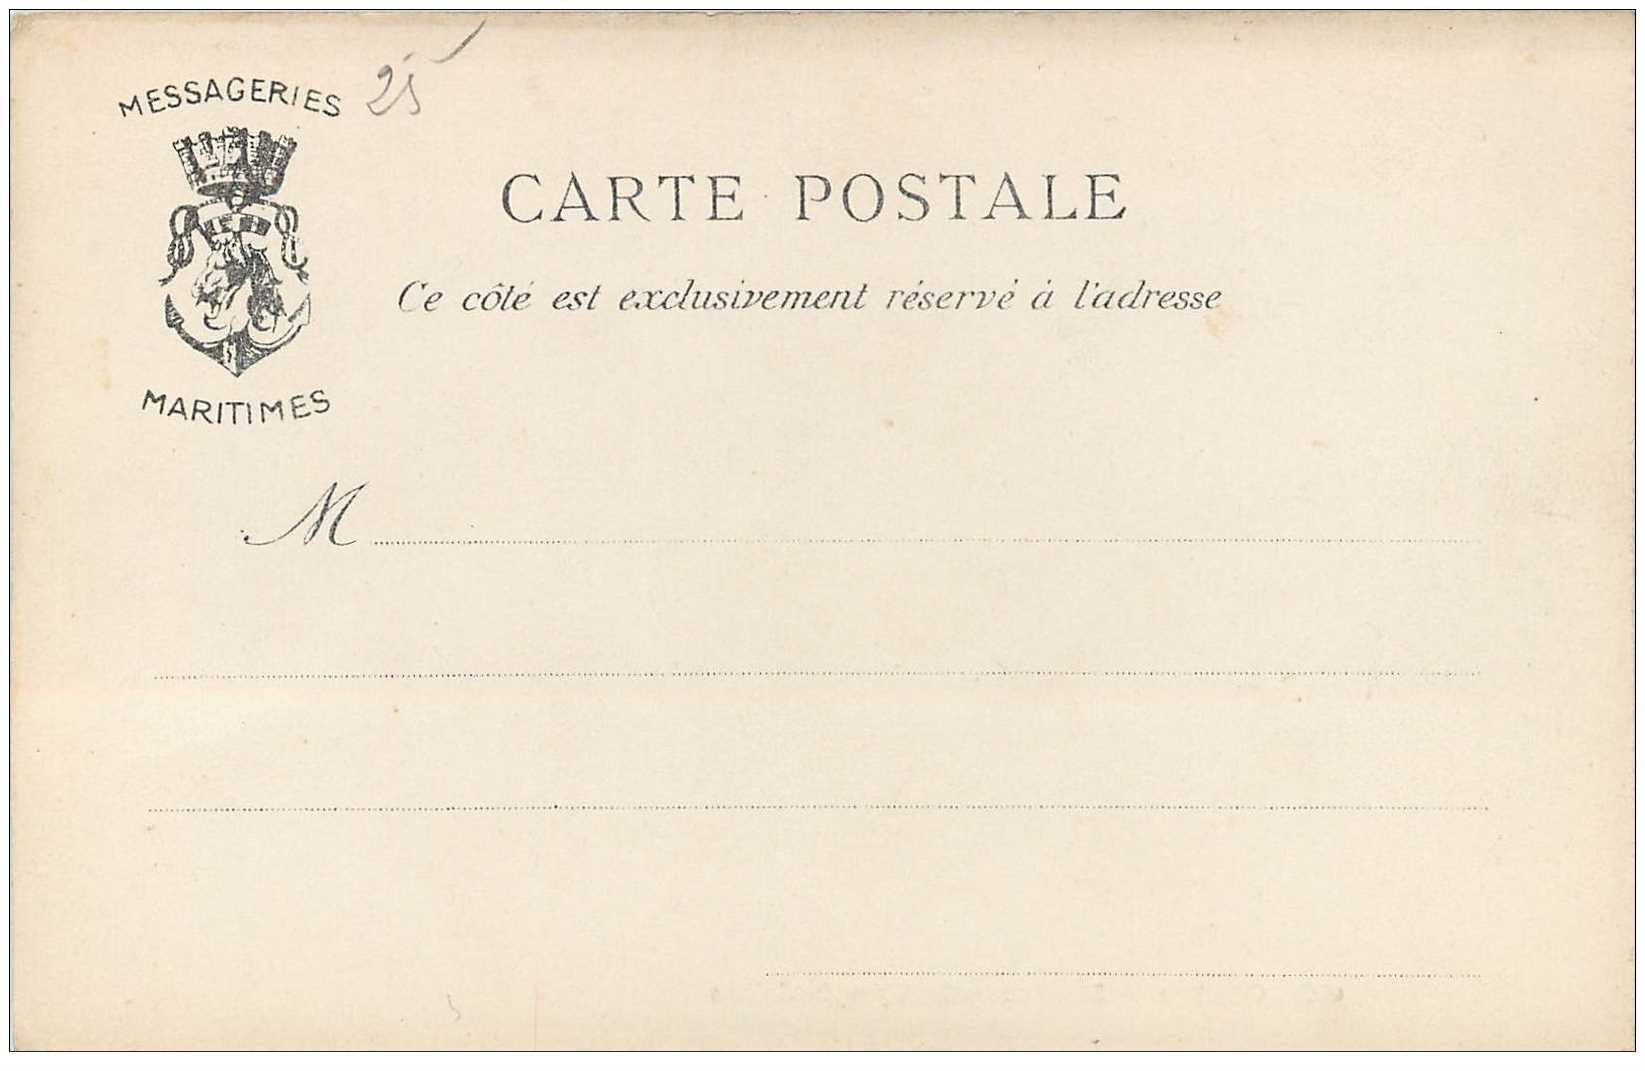 MESSAGERIES
25
CARTE POSTALE
Ce côté est exclusivement réservé à l'adresse
MARITIMES
M